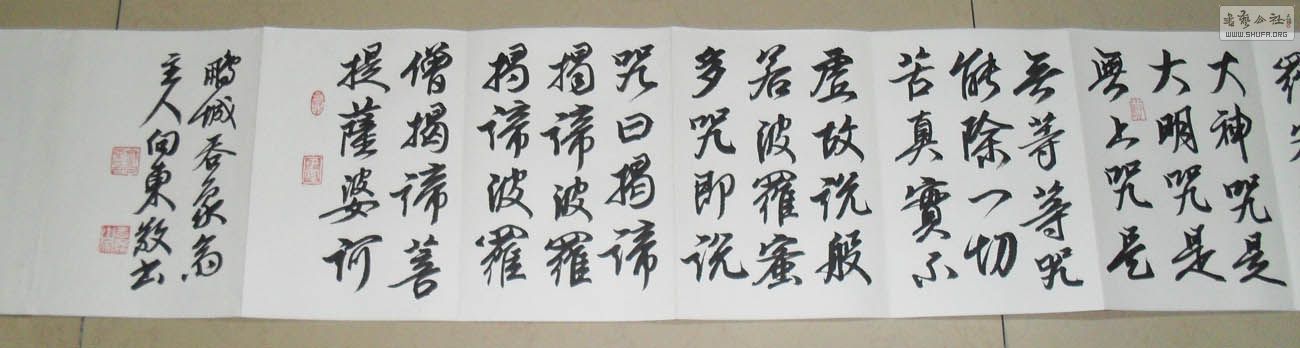 大神咒是
大明咒是
無上咒是
无等等咒
能除一切
苦真實不
虛故説般
若波羅蜜
多咒即説
咒曰揭諦
揭諦波羅
揭諦波羅
僧揭諦菩
提薩婆訶
鵬城吞象斋
主人向東敬书
書藝公社
WWW.SHUFA.ORG